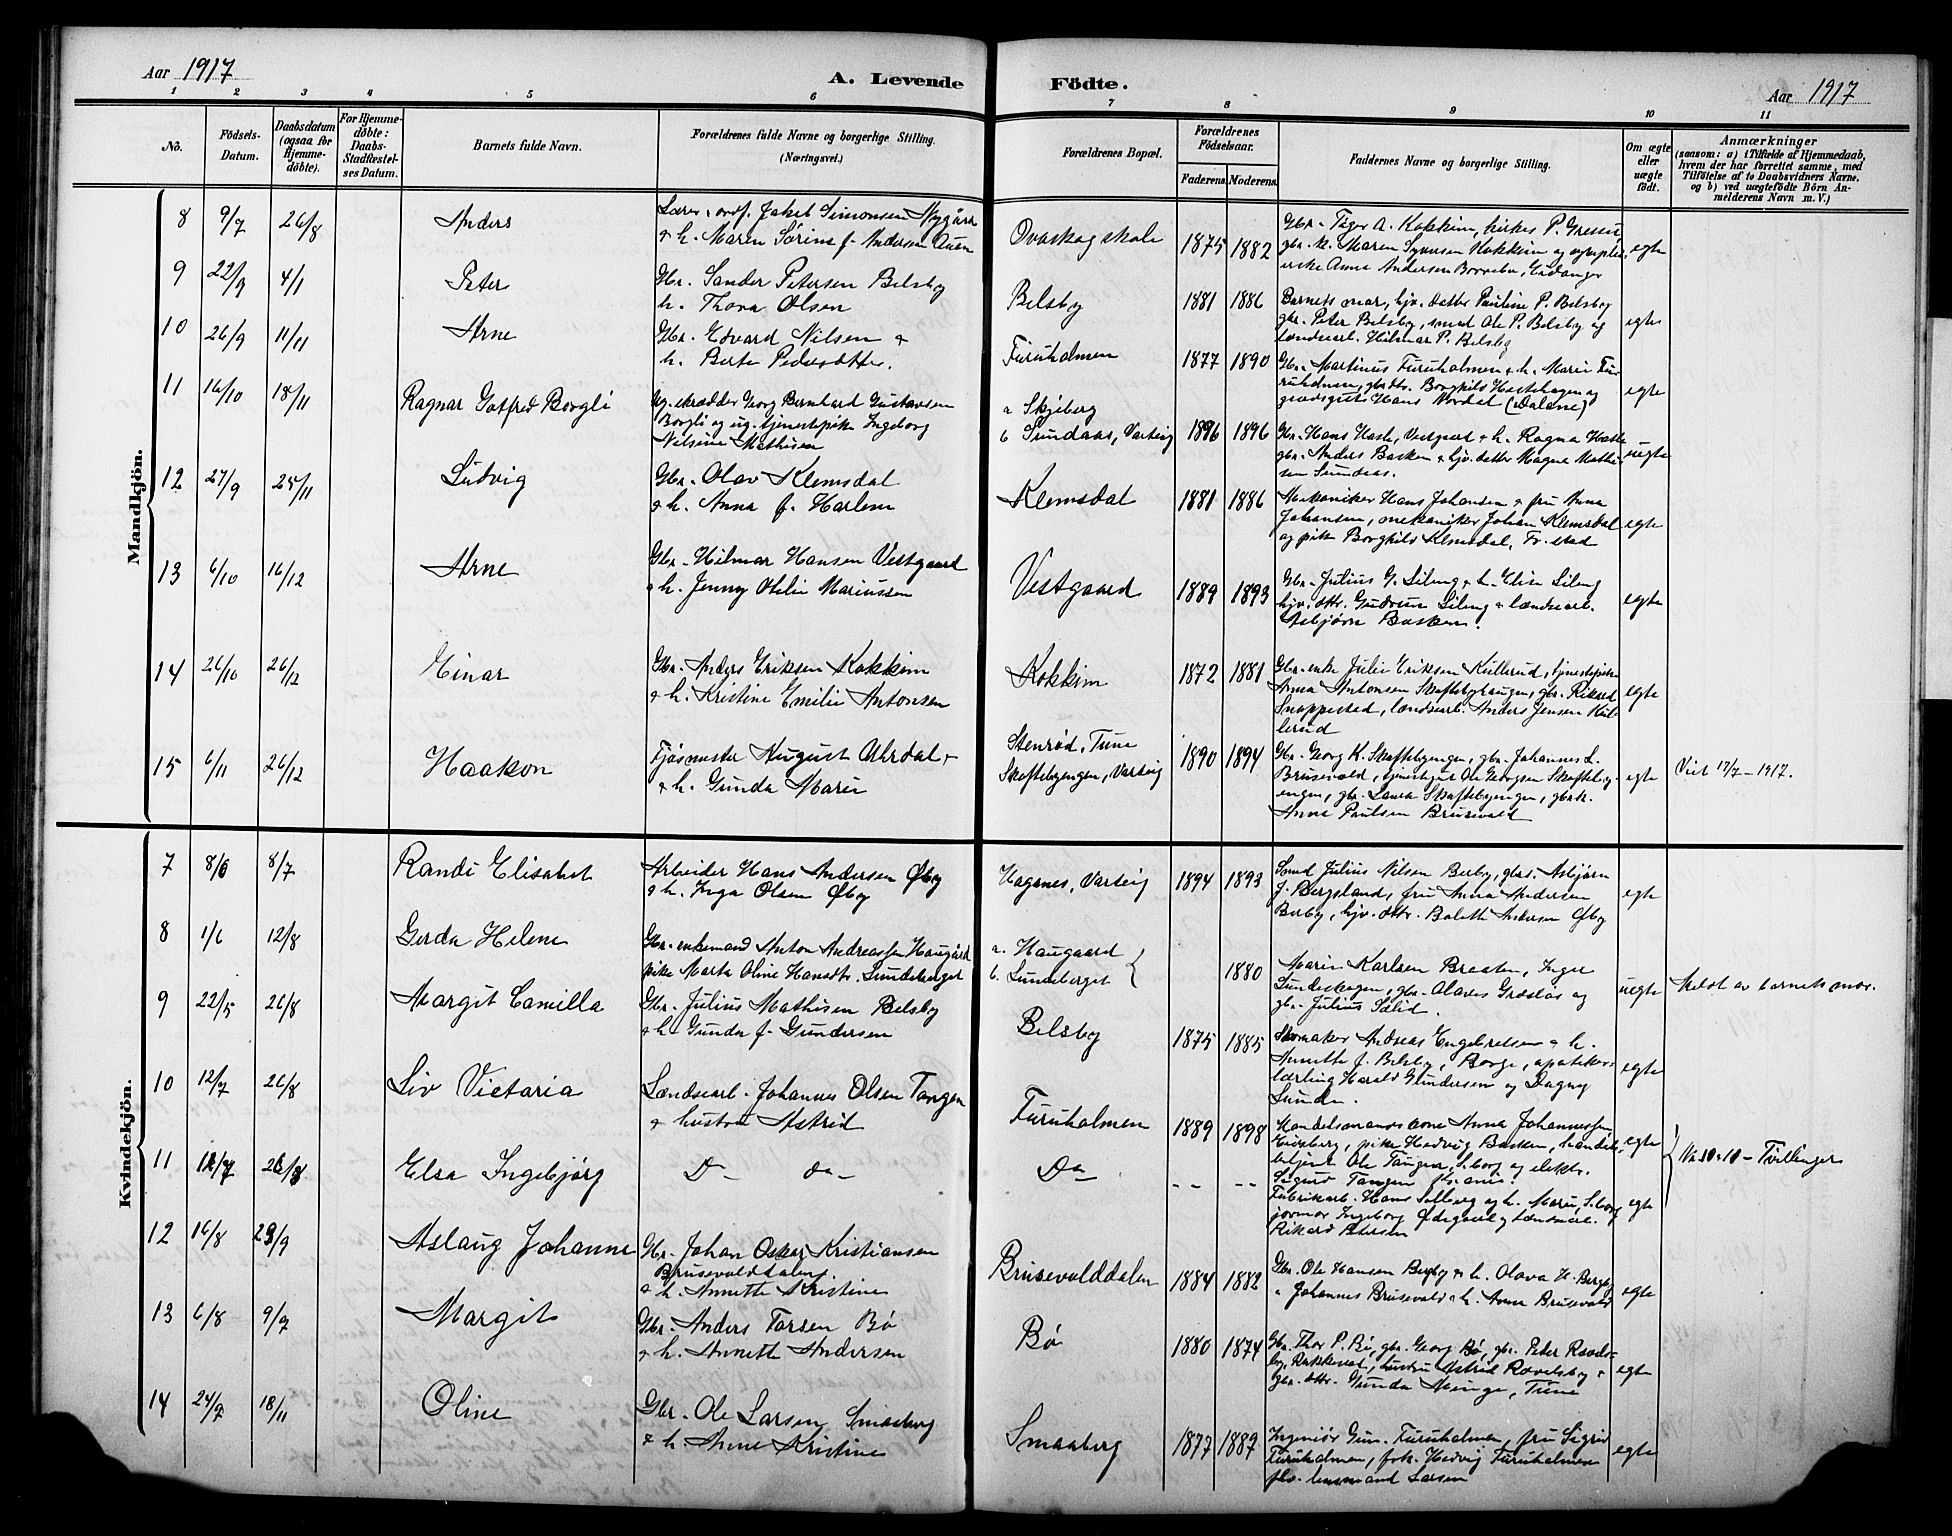 Aar 1917
A. Levende Födte.
Aar 1917
1 2 3 4 5 6 7 8 9 10 11
No.
Födsels-Datum.
Daabsdatum (ogsaa for Hjemme-döbte).
For Hjemme-döbte: Daabs-Stadfæstel-ses Datum.
Barnets fulde Navn.
Forældrenes fulde Navne og borgerlige Stilling. (Næringsvei.)
Forældrenes Bopæl.
Forældrenes Födselsaar.
Faderens. Moderens.
Faddernes Navne og borgerlige Stilling.
Om ægte eller uægte födt.
Anmærkninger
(saasom: a) i Tilfælde af Hjemmedaab,
hvem der har forrettet samme, med
Tilföielse af to Daabsvidners Navne,
og b) ved uægtefödte Börn An-
melderens Navn m. V.)
Mandkjön.
8 9/7 26/8 Anders
Lærer, ordf. Jakob Simonsen Nygård
+ h. Maren Sørine f. Andersen
Ovaskog skole 1875 1882
Gbr. A. Kokkim, P.
gbr. k. Maren Syversen Kokkim og
Anna Andersen
egte
9 22/9 4/1 Peter
Gbr. Sander Petersen Belsby
h. Thora Olsen
Belsby 1881 1886
Barnets mor, hjv. datter Pauline P. Belsby
gbr. Peter Belsby, smed Ole P. Belsby og
landsarb. Hilmar P. Belsby
egte
10 26/9 11/11 Arne
Gbr. Edvard Nilsen +
h. Berte Pedersdatter.
Furuholmen 1877 1890
Gbr. Martinus Furuholmen + h. Marie Fu-
ruholmen, gbrdtr. Borghild Hastehagen og
Hans Nordal
egte
11 16/10 18/11 Ragnar Gotfred Borgli
Ug. skrædder Georg Bernhard Gustavsen
Borgli og ug. tjenestepike Ingeborg
Nilsine Mathisen
a Skjeberg
b Sundaas, Varteig 1896 1896
Gbr. Hans Hasle, Vestgard + h. Ragna Hasle
gbr. Anders Basken + hjv. datter Magna Mathi-
sen Sundaas.
uegte
12 27/9 25/11 Ludvig
Gbr. Olav Klemsdal
+ h. Anna f. Harlem
Klemsdal 1881 1886
Mekaniker Hans Johansen + fru Anna
Johansen, mekaniker Johan Klemsdal
og pike Borghild Klemsdal, Fr. stad
egte
13 6/10 16/12 Arne
Gbr. Hilmar Hansen Vestgaard
+ h. Jenny Otelie Mariussen
Vestgaard 1889 1893
Gbr. Julius G. Lileng + h. Elise Lileng
hjv. dttr. Gudrun Lileng + landsarb.
Asbjørn Basken.
egte
14 26/10 26/12 Einar
Gbr. Anders Eriksen Kokkim
+ h. Kristine Emilie Antonsen
Kokkim 1872 1881
Gbr. enke Julie Eriksen Kullerud, tjenestepike
Anna Antonsen Skaftebyhaugen, gbr. Rikard
Snappestad, landsarb. Anders Jensen Kul-
lerud
egte
15 6/11 26/12 Haakon
Fjøsmester August Ahrdal +
+ h. Gunda Marie
Stenrød, Tune
Skaftebyengen, Varteig 1890 1894
Gbr. Georg K. Skaftebyengen, gbr. Johannes L.
Brusevold, tjenestegut Ole Georgsen Skafteby-
engen, gbr. Laura Skaftebyengen, gbrk.
Anna Paulsen Brusevold
egte
Viet 17/7 – 1917.
Kvindekjön.
7 8/6 8/7 Randi Elisabet
Arbeider Hans Andersen Øby
+ h. Inga Olsen Øby
Hagenes, Varteig 1894 1893
Smed Julius Nilsen Berby, gbrs. Asbjørn
J. Bergsland, fru Anna Andersen
Berby, hjv. dttr. Andersen Øby
egte
8 1/6 12/8 Gerda Helene
Gbr. enkemand Anton Andreassen Haugård
pike Marta Oline Hansdtr. Sundeberget
a. Haugaard
b. Sundeberget 1880
Marie Karlsen Braaten, Inger
Sundeskogen, gbr. Olaves Græslos og
gbr. Julius Solid.
uegte
Meldt av barnets mor.
9 22/5 26/8 Margit Camilla
Gbr. Julius Mathisen Belsby
+ h. Gunda f. Gundersen
Belsby 1875 1885
Skomaker Andreas Engebretsen + h.
Annette f. Belsby, Borge, apoteker-
lærling Harald Gundersen og Dagny
Lunde.
egte
10 12/7 26/8 Liv Victoria
Landsarb. Johannes Olsen Tangen
+ hustru Astrid
Furuholmen 1889 1898
Handelsmands kone Anna Johannessen
pike Hedvig Basken, handels-
betjent Ole Tangen, S.borg og elektr.
Sigurd Tangen
egte
No 10 + 11 – Tvillinger
11 12/7 26/8 Elsa Ingebjørg
Do – do –
Do –
- - - -
Fabrikarb. Hans Solberg og h. Marie, S.borg
jormor Ingeborg Ødegaard, landsarb.
Rikard Petersen
egte
12 16/8 23/9 Aslaug Johanne
Gbr. Johan Oskar Kristiansen
Brusevolddalen
+ h. Annette Kristine
Brusevolddalen 1884 1882
Gbr. Ole Hansen Bergby + h. Olava H. Bergby
" Johannes Brusevold + h. Anna Brusevold
egte
13 6/8 9/9 Margit
Gbr. Anders Torsen Bø
+ h. Annette Andersen
Bø 1880 1874
Gbr. Thor P. Bø, gbr. Georg Bø, gbr. Peter Ravels-
by, Rakkestad, hustru Astrid Ravelsby +
gbr. dttr. Gunda Minge, Tune
egte
14 24/9 18/11 Oline
Gbr. Ole Larsen Smaaberg
+ h. Anne Kristine
Smaaberg 1877 1887
Ingeniør Gun. Furuholmen, fru Sigrid
Furuholmen, frk. Hedvig Furuholmen
fhv. lensmand Larsen
egte